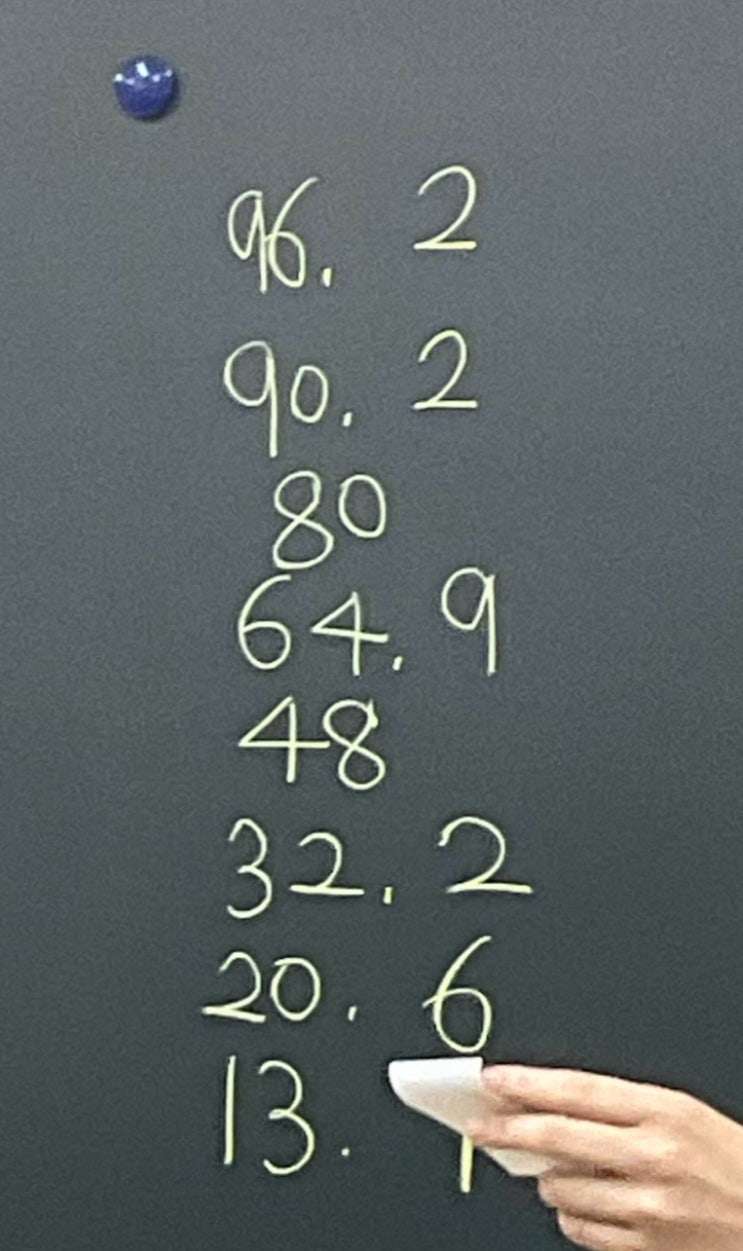 96.2
90.2
80
64.9
48
32.2
20.6
13.